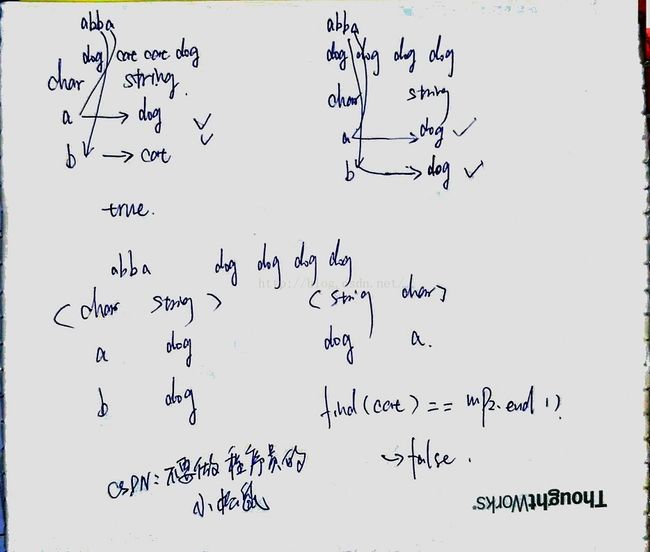 abba
dog cat cat dog
char string
a → dog ✓
✓
b → cat
true.
abba
dog dog dog dog
char string
a → dog ✓
b → dog ✓
abba dog dog dog dog
http://blog.csdn.net/
<char string> <string char>
a dog dog a.
b dog
find(cat) == mp2.end()
→ false.
CSDN: 不要做程序员的
小松鼠
ThoughtWorks®